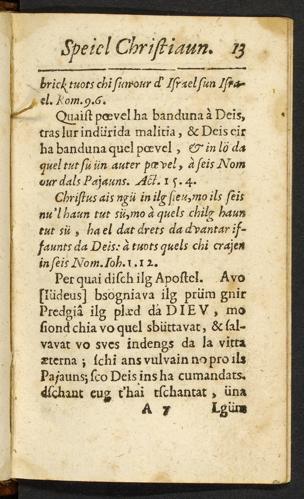 Speiel Christiaun. 13
brick tuots chi sun our d' Israel sun Isra-
el. Rom. 9. 6.
Quaist pœvel ha banduna à Deis,
tras lur indürida malitia, & Deis eir
ha banduna quel pœvel, & in lö da
quel tut sü ün auter pœvel, à seis Nom
our dals Pajauns. Act. 15. 4.
Christus ais ngü in ilg sieu, mo ils seis
nu'l haun tut sü, mo à quels chilg haun
tut sü, ha el dat drets da dvantar if-
faunts da Deis: à tuots quels chi crajen
in seis Nom. Ioh. 1. 12.
Per quai disch ilg Apostel. Avo
[Iüdeus] bsögniava ilg prüm gnir
Predgiâ ilg plæd dà DIEV, mo
siond chia vo quel sbüttavat, & sal-
vavat vo sves indengs da la vitta
æterna; schi ans vulvain no pro ils
Pajauns; sco Deis ins ha cumandats.
dschant eug t'hai tschantat, üna
A 7 Lgüm